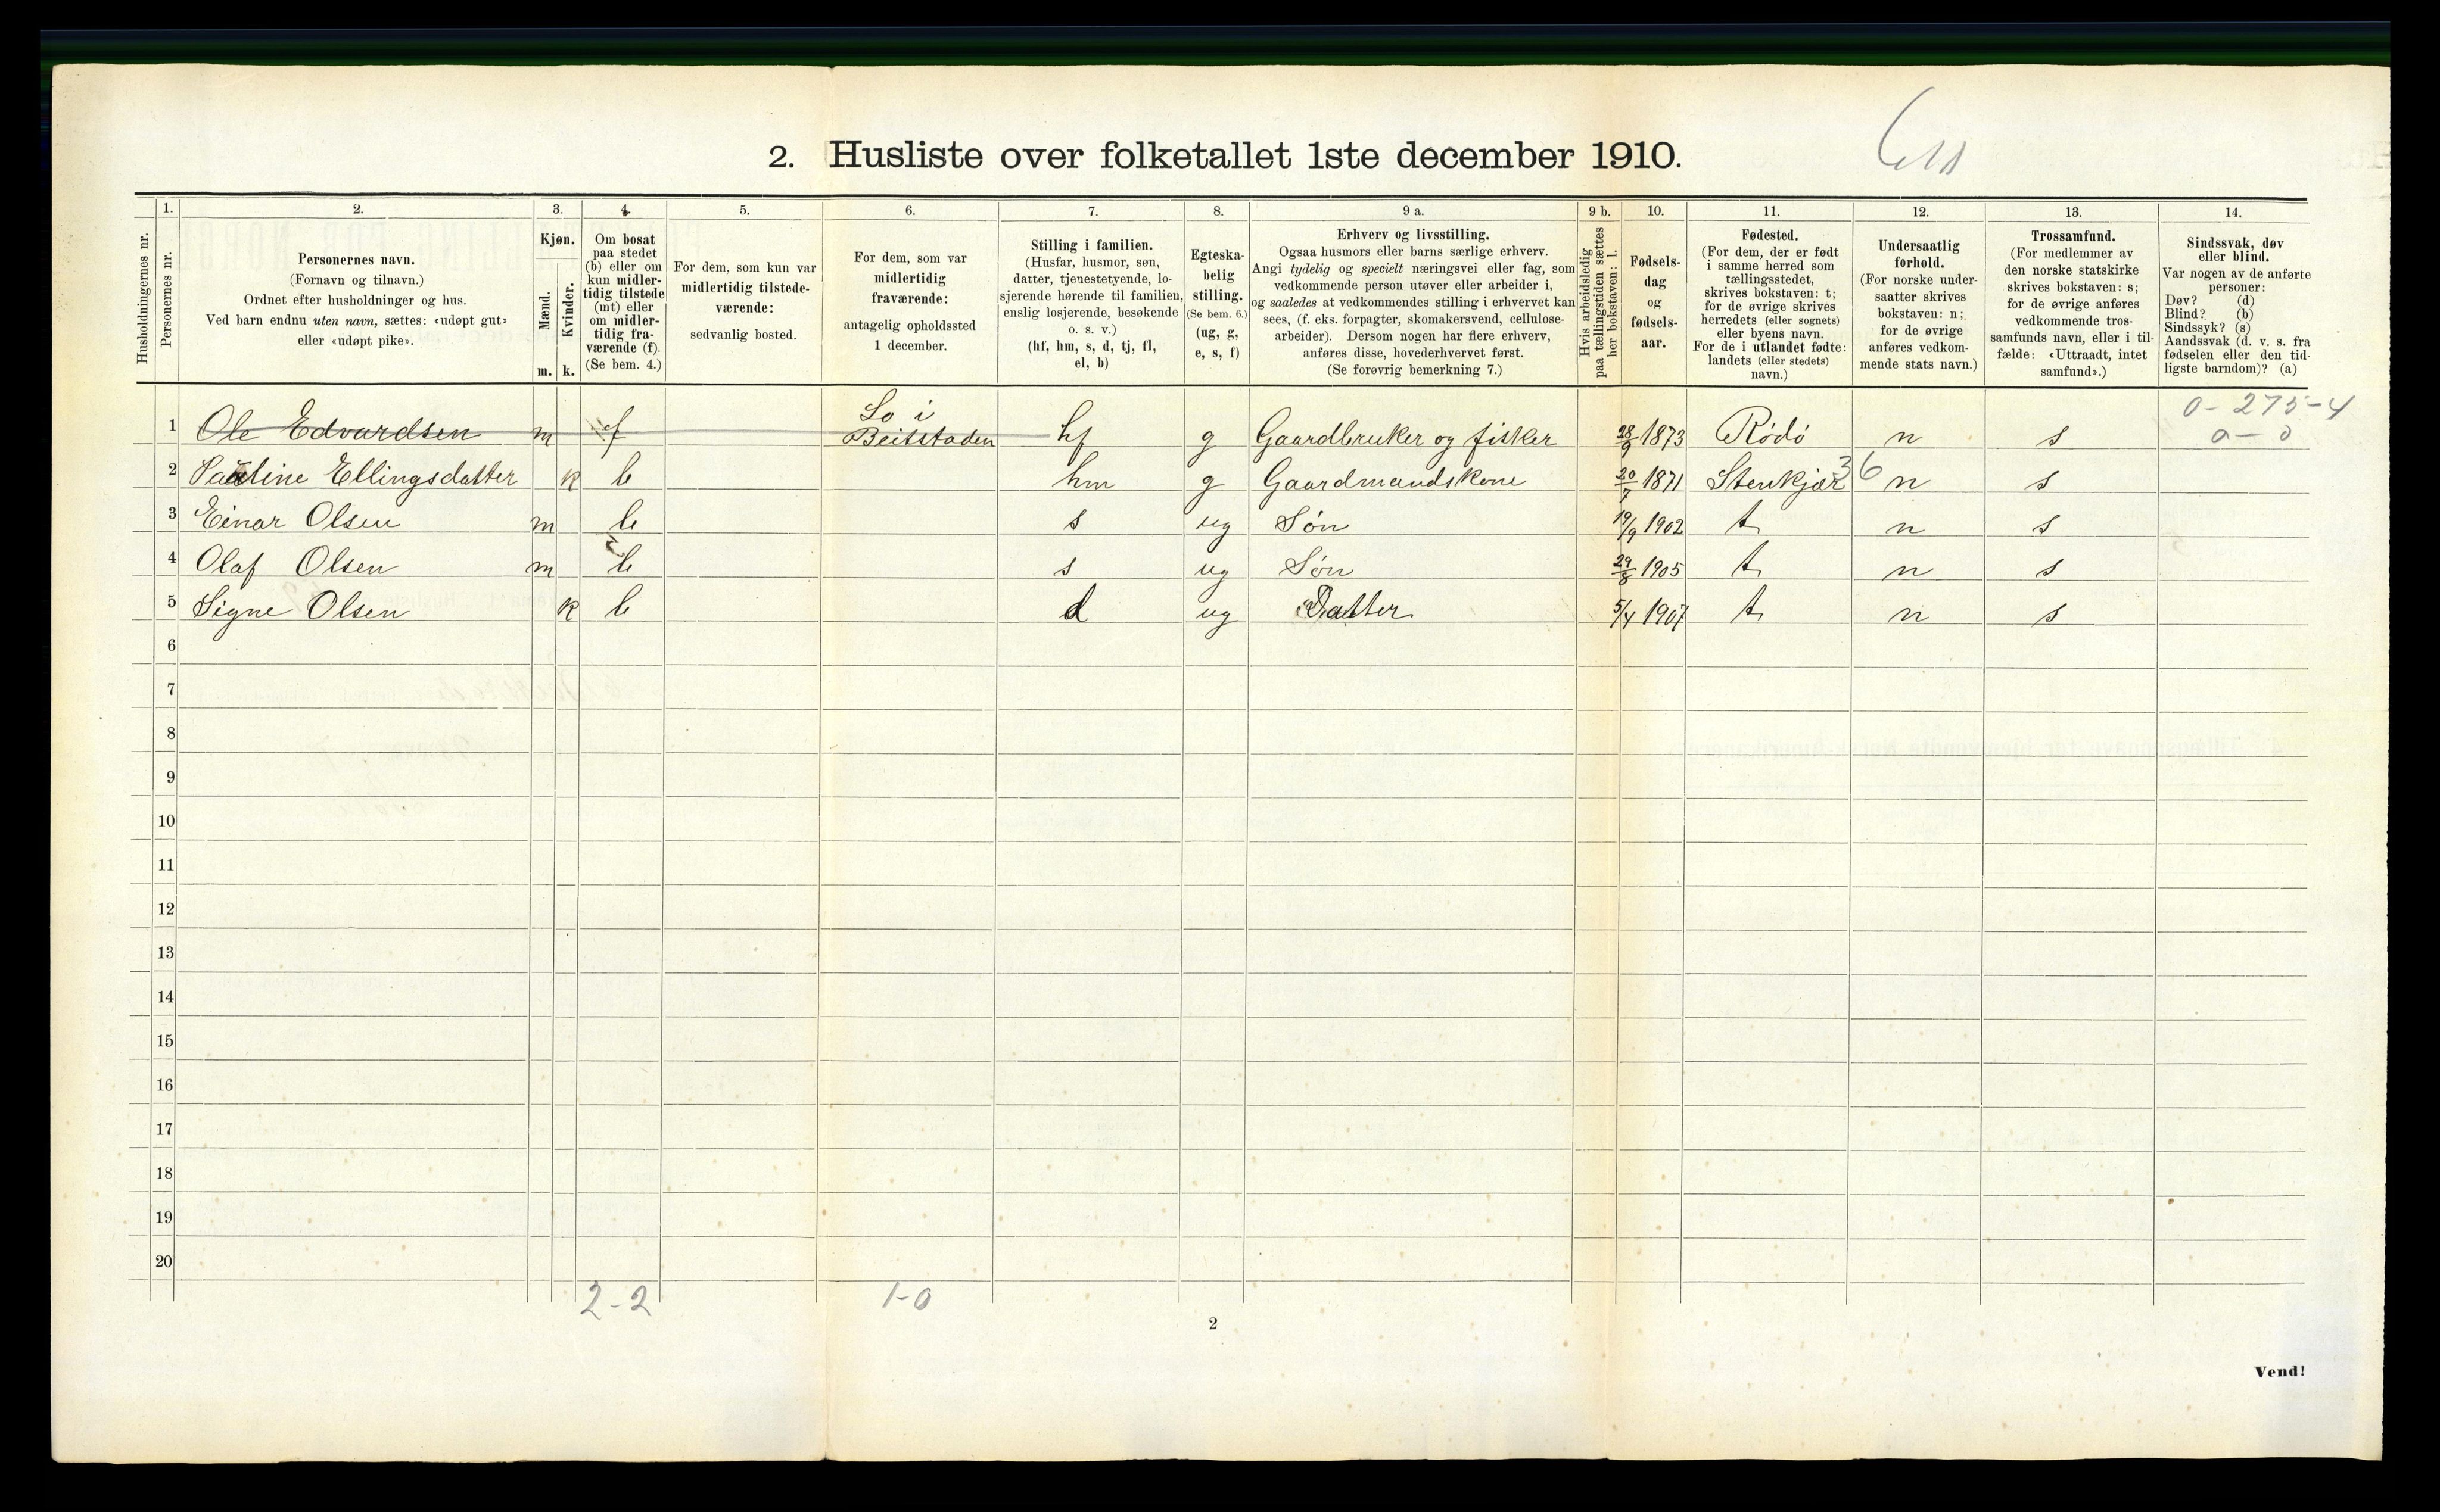 2. Husliste over folketallet 1ste december 1910.
1. 2. 3. 4. 5. 6. 7. 8. 9 a. 9 b. 10. 11. 12. 13. 14.
Husholdningernes nr.
Personernes nr.
Personernes navn.
(Fornavn og tilnavn.)
Ordnet efter husholdninger og hus.
Ved barn endnu uten navn, sættes: «udøpt gut»
eller «udøpt pike».
Kjøn.
Mænd.
Kvinder.
m. k.
Om bosat
paa stedet
(b) eller om
kun midler-
tidig tilstede
(mt) eller
om midler-
tidig fra-
værende (f).
(Se bem. 4.)
For dem, som kun var
midlertidig tilstede-
værende:
sedvanlig bosted.
For dem, som var
midlertidig
fraværende:
antagelig opholdssted
1 december.
Stilling i familien.
(Husfar, husmor, søn,
datter, tjenestetyende, lo-
sjerende hørende til familien,
enslig losjerende, besøkende
o. s. v.)
(hf, hm, s, d, tj, fl,
el, b)
Egteska-
belig
stilling.
(Se bem. 6.)
(ug, g,
e, s, f)
Erhverv og livsstilling.
Ogsaa husmors eller barns særlige erhverv.
Angi tydelig og specielt næringsvei eller fag, som
vedkommende person utøver eller arbeider i,
og saaledes at vedkommendes stilling i erhvervet kan
sees, (f. eks. forpagter, skomakersvend, cellulose-
arbeider). Dersom nogen har flere erhverv,
anføres disse, hovederhvervet først.
(Se forøvrig bemerkning 7.)
Hvis arbeidsledig
paa tællingstiden sættes
her bokstaven: l.
Fødsels-
dag
og
fødsels-
aar.
Fødested.
(For dem, der er født
i samme herred som
tællingsstedet,
skrives bokstaven: t;
for de øvrige skrives
herredets (eller sognets)
eller byens navn.
For de i utlandet fødte:
landets (eller stedets)
navn.)
Undersaatlig
forhold.
(For norske under-
saatter skrives
bokstaven: n;
for de øvrige
anføres vedkom-
mende stats navn.)
Trossamfund.
(For medlemmer av
den norske statskirke
skrives bokstaven: s;
for de øvrige anføres
vedkommende tros-
samfunds navn, eller i til-
fælde: «Uttraadt, intet
samfund».)
Sindssvak, døv
eller blind.
Var nogen av de anførte
personer:
Døv? (d)
Blind? (b)
Sindssyk? (s)
Aandssvak (d. v. s. fra
fødselen eller den tid-
ligste barndom)? (a)
0-275-4
Lo i
1 Ole Edvardsen m f Beitstaden hf g Gaardbruker og fisker 28/9 1873 Rödö n s 0-0
2 Pauline Ellingsdatter k b hm g Gaardmandskone 20/7 1871 Stenkjær 36 n s
3 Einar Olsen m b s ug Søn 19/9 1902 t n s
4 Olaf Olsen m b s ug Søn 29/8 1905 t n s
5 Signe Olsen k b d ug Datter 5/4 1907 t n s
6
7
8
9
10
11
12
13
14
15
16
17
18
19
20
2-2 1-0
2
Vend!